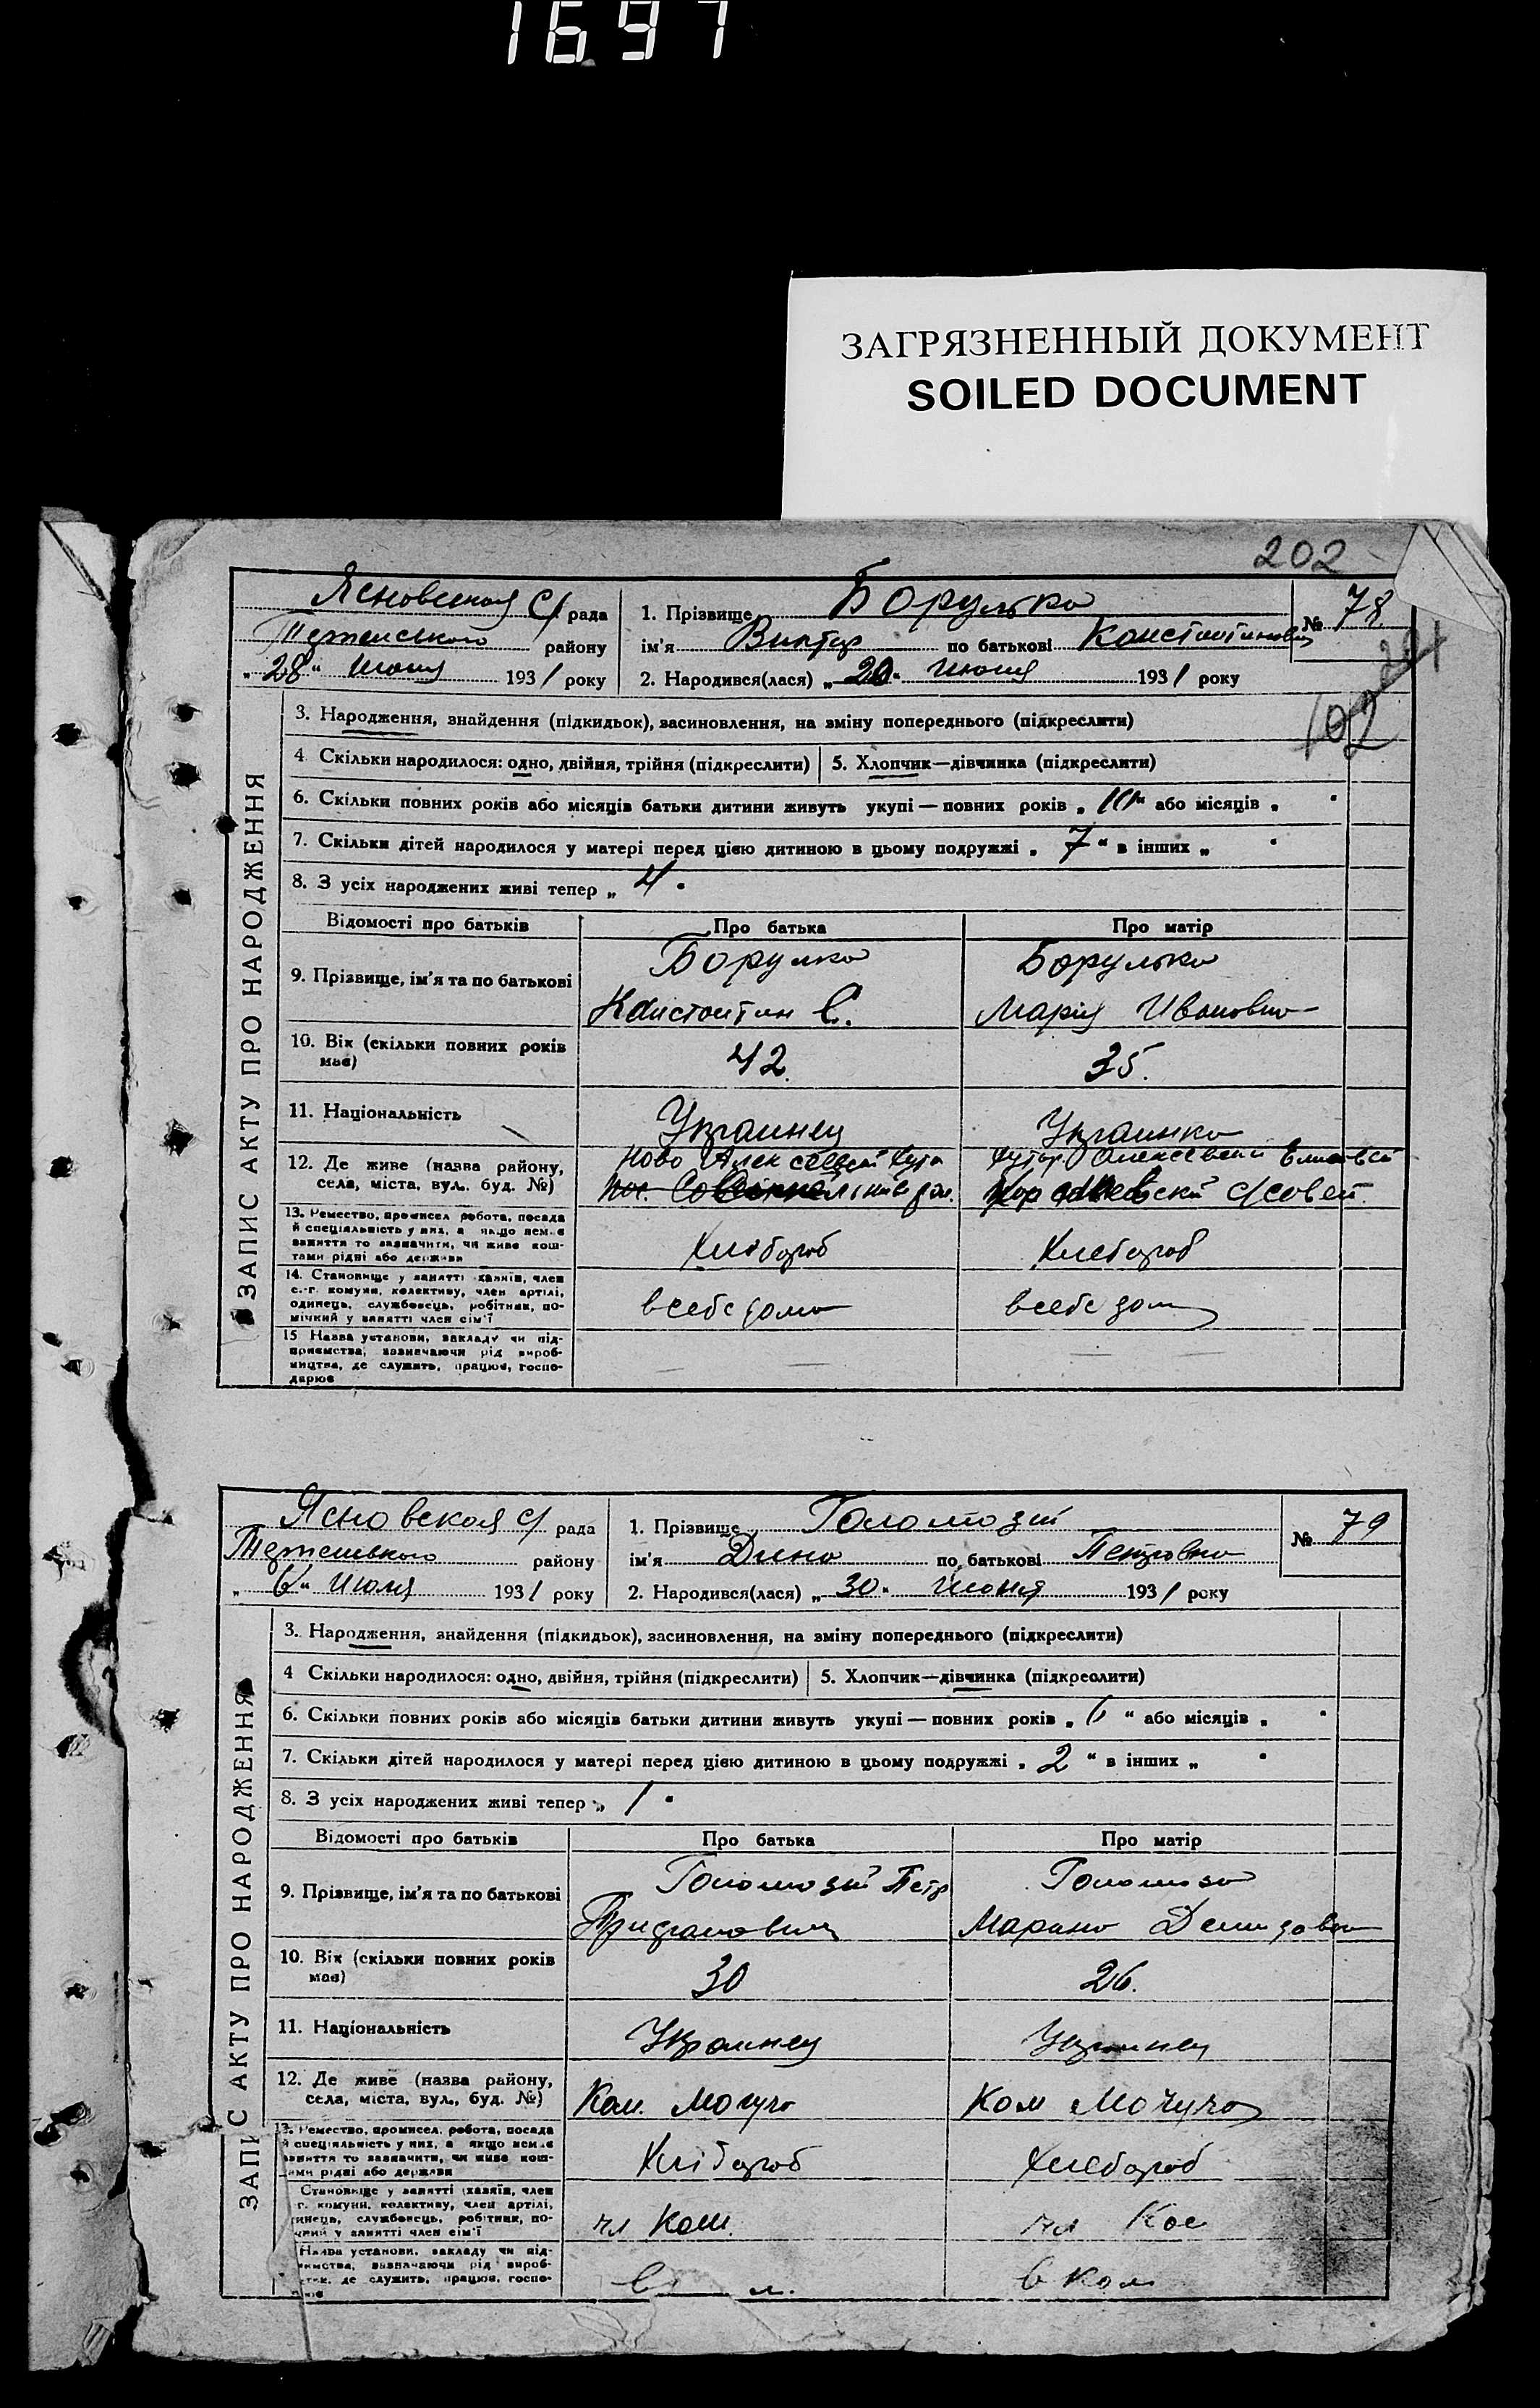 1697
ЗАГРЯЗНЕННЫЙ ДОКУМЕНТ
SOILED DOCUMENT
202
Ясновская С/ рада
району
„ 28 “ июня 1931 року
1. Прізвище Борулько
ім’я Виктор по батькові Константинович
2. Народився(лася) „ 20 “ июня 1931 року
№ 78
201
102
ЗАПИС АКТУ ПРО НАРОДЖЕННЯ
3. Народження, знайдення (підкидьок), засиновлення, на зміну попереднього (підкреслити)
4. Скільки народилося: одно, двійня, трійня (підкреслити) 5. Хлопчик—дівчинка (підкреслити)
6. Скільки повних років або місяців батьки дитини живуть укупі — повних років „ “ або місяців „ “
7. Скільки дітей народилося у матері перед цією дитиною в цьому подружжі „ 7 “ в інших „ “
8. З усіх народжених живі тепер „ 4 “
Відомості про батьків Про батька Про матір
9. Прізвище, ім’я та по батькові
Борулко Борулько
Константин С. Мария Ивановно
10. Вік (скільки повних років має) 42. 35.
11. Національність Украинец Украинка
12. Де живе (назва району,
села, міста, вул., буд. №)
Ново Алексеевский
Хутор с/совет
13. Ремество, промисел, робота, посада
й спеціяльність у них, а якщо немає
заняття то зазначити, чи живе кош-
тами рідні або держави
Хлібороб Хлебороб
14. Становище у занятті хазяїн, член
с.-г. комуни, колективу, член артілі,
одинець, службовець, робітник, по-
мічний у занятті член сім’ї
15 Назва установи, закладу чи під-
приємства, зазначаючи рід вироб-
ництва, де служить, працює, госпо-
дарює
— — — —
Ясновская С/ рада
району
„ 6 “ Июля 1931 року
1. Прізвище Голомозий
ім’я Дина по батькові Петровна
2. Народився(лася) „ 30 “ Июня 1931 року
№ 79
ЗАПИС АКТУ ПРО НАРОДЖЕННЯ
3. Народження, знайдення (підкидьок), засиновлення, на зміну попереднього (підкреслити)
4 Скільки народилося: одно, двійня, трійня (підкреслити) 5. Хлопчик—дівчинка (підкреслити)
6. Скільки повних років або місяців батьки дитини живуть укупі — повних років „ “ або місяців „ “
7. Скільки дітей народилося у матері перед цією дитиною в цьому подружжі „ 2 “ в інших „ “
8. З усіх народжених живі тепер „ 1 “
Відомості про батьків Про батька Про матір
9. Прізвище, ім’я та по батькові
Голомозий Петр Голомозо
Марино Демидовно
10. Вік (скільки повних років має) 30 26.
11. Національність Украинец Украинец
12. Де живе (назва району,
села, міста, вул., буд. №)
Ком. Ком
13. Ремество, промисел, робота, посада
й спеціяльність у них, а якщо немає
заняття то зазначити, чи живе кош-
тами рідні або держави
Хлібороб Хлебороб
Становище у занятті (хазяїн, член
г. комуни, колективу, член артілі,
инець, службовець, робітник, по-
чний у занятті член сім’ї
чл Ком. чл
Назва установи, закладу чи під-
ємства, зазначаючи рід вироб-
де служить, працює, госпо-
в Ком